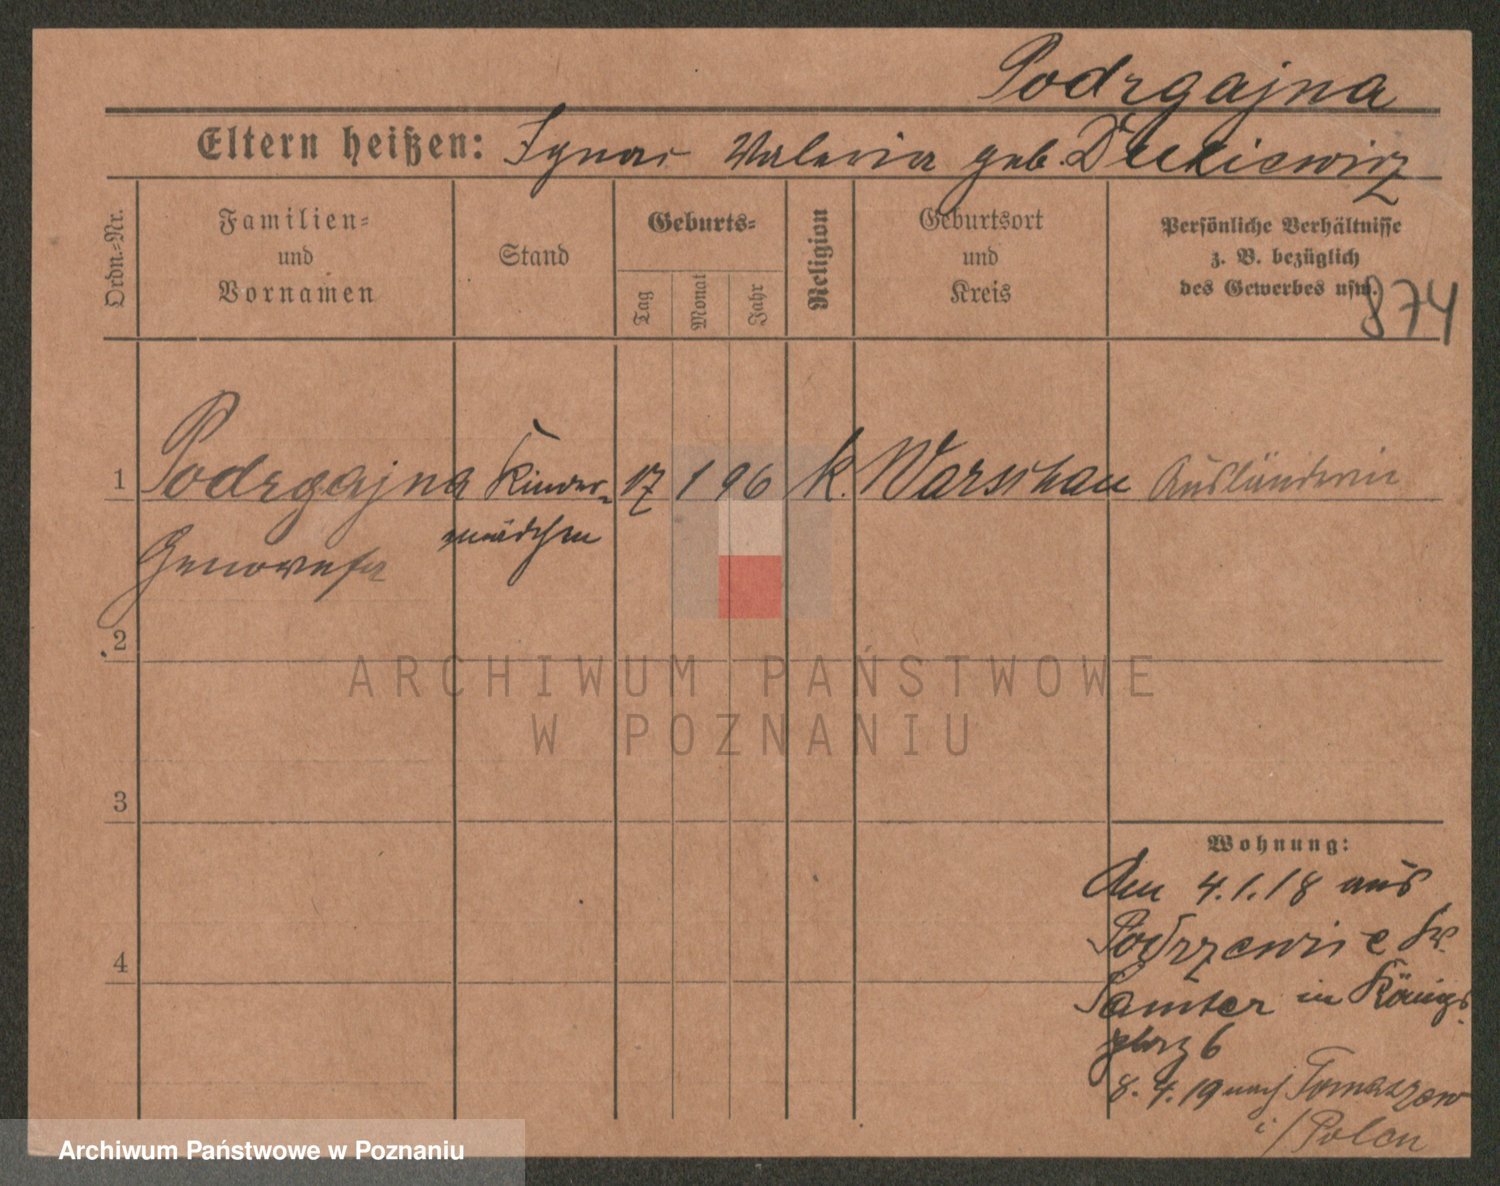 Podrgajna
Eltern heißen: Ignac Valeria geb.
Ordn.-Nr.
Familien-
und
Vornamen
Stand
Geburts-
Tag
Monat
Jahr
Religion
Geburtsort
und
Kreis
Persönliche Verhältnisse
z. B. bezüglich
des Gewerbes usw.
874
1 Podrgajna Kinder- 17 1 96 k. Warschau Ausländerin
mädchen
Genowefa
2
ARCHIWUM PAŃSTWOWE
W POZNANIU
3
Wohnung:
Den 4.1.18 aus
Podrzewie Kr.
4
Samter in Königs-
platz 6
8.4.19 nach Tomaszow
i/Polen
Archiwum Państwowe w Poznaniu